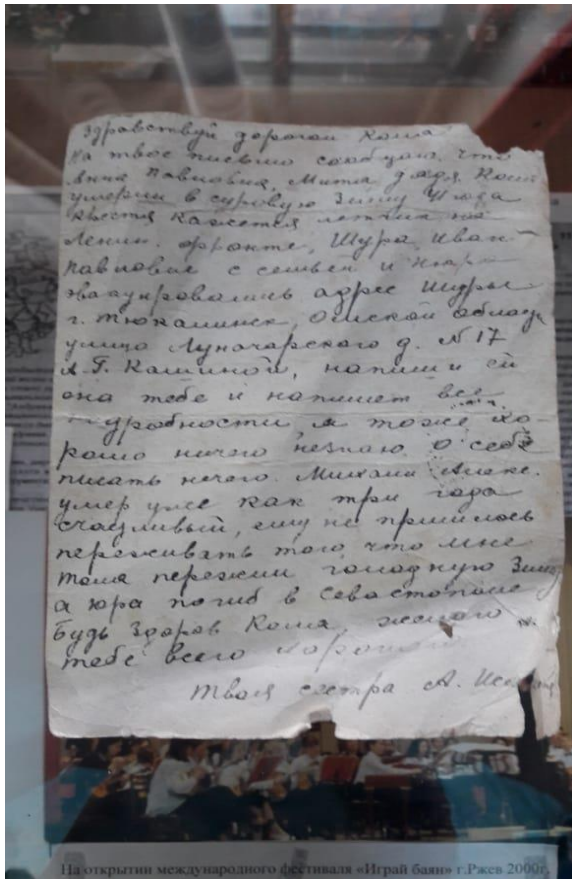 Здравствуй дорогой Коша
На твое письмо сообщаю, что
Анна Павловна, Митя дядя Коля
умерли в суровую Зиму 42 года
Костя кажется летчик на
Ленин. фронте, Шура, Иван
Павлович с семьей и Нюра
эвакуировались адрес Шуры
г. Тюкалинск, Омской области
улица Луначарского д. N 17
А. Г. Калиной, напиши ей
она тебе и напишет все
подробности, я тоже хо-
рошо ничего незнаю о себе
писать нечего. Михаил Алекс.
умер уже как три года
счастливый, ему не пришлось
переживать того, что мне
Тома пережили голодную Зиму
а Юра погиб в Севастополе
Будь Здоров Коша, желаю
тебе всего хорошего
Твоя сестра А.
На открытии международного фестиваля «Играй баян» г.Ржев 2000г.